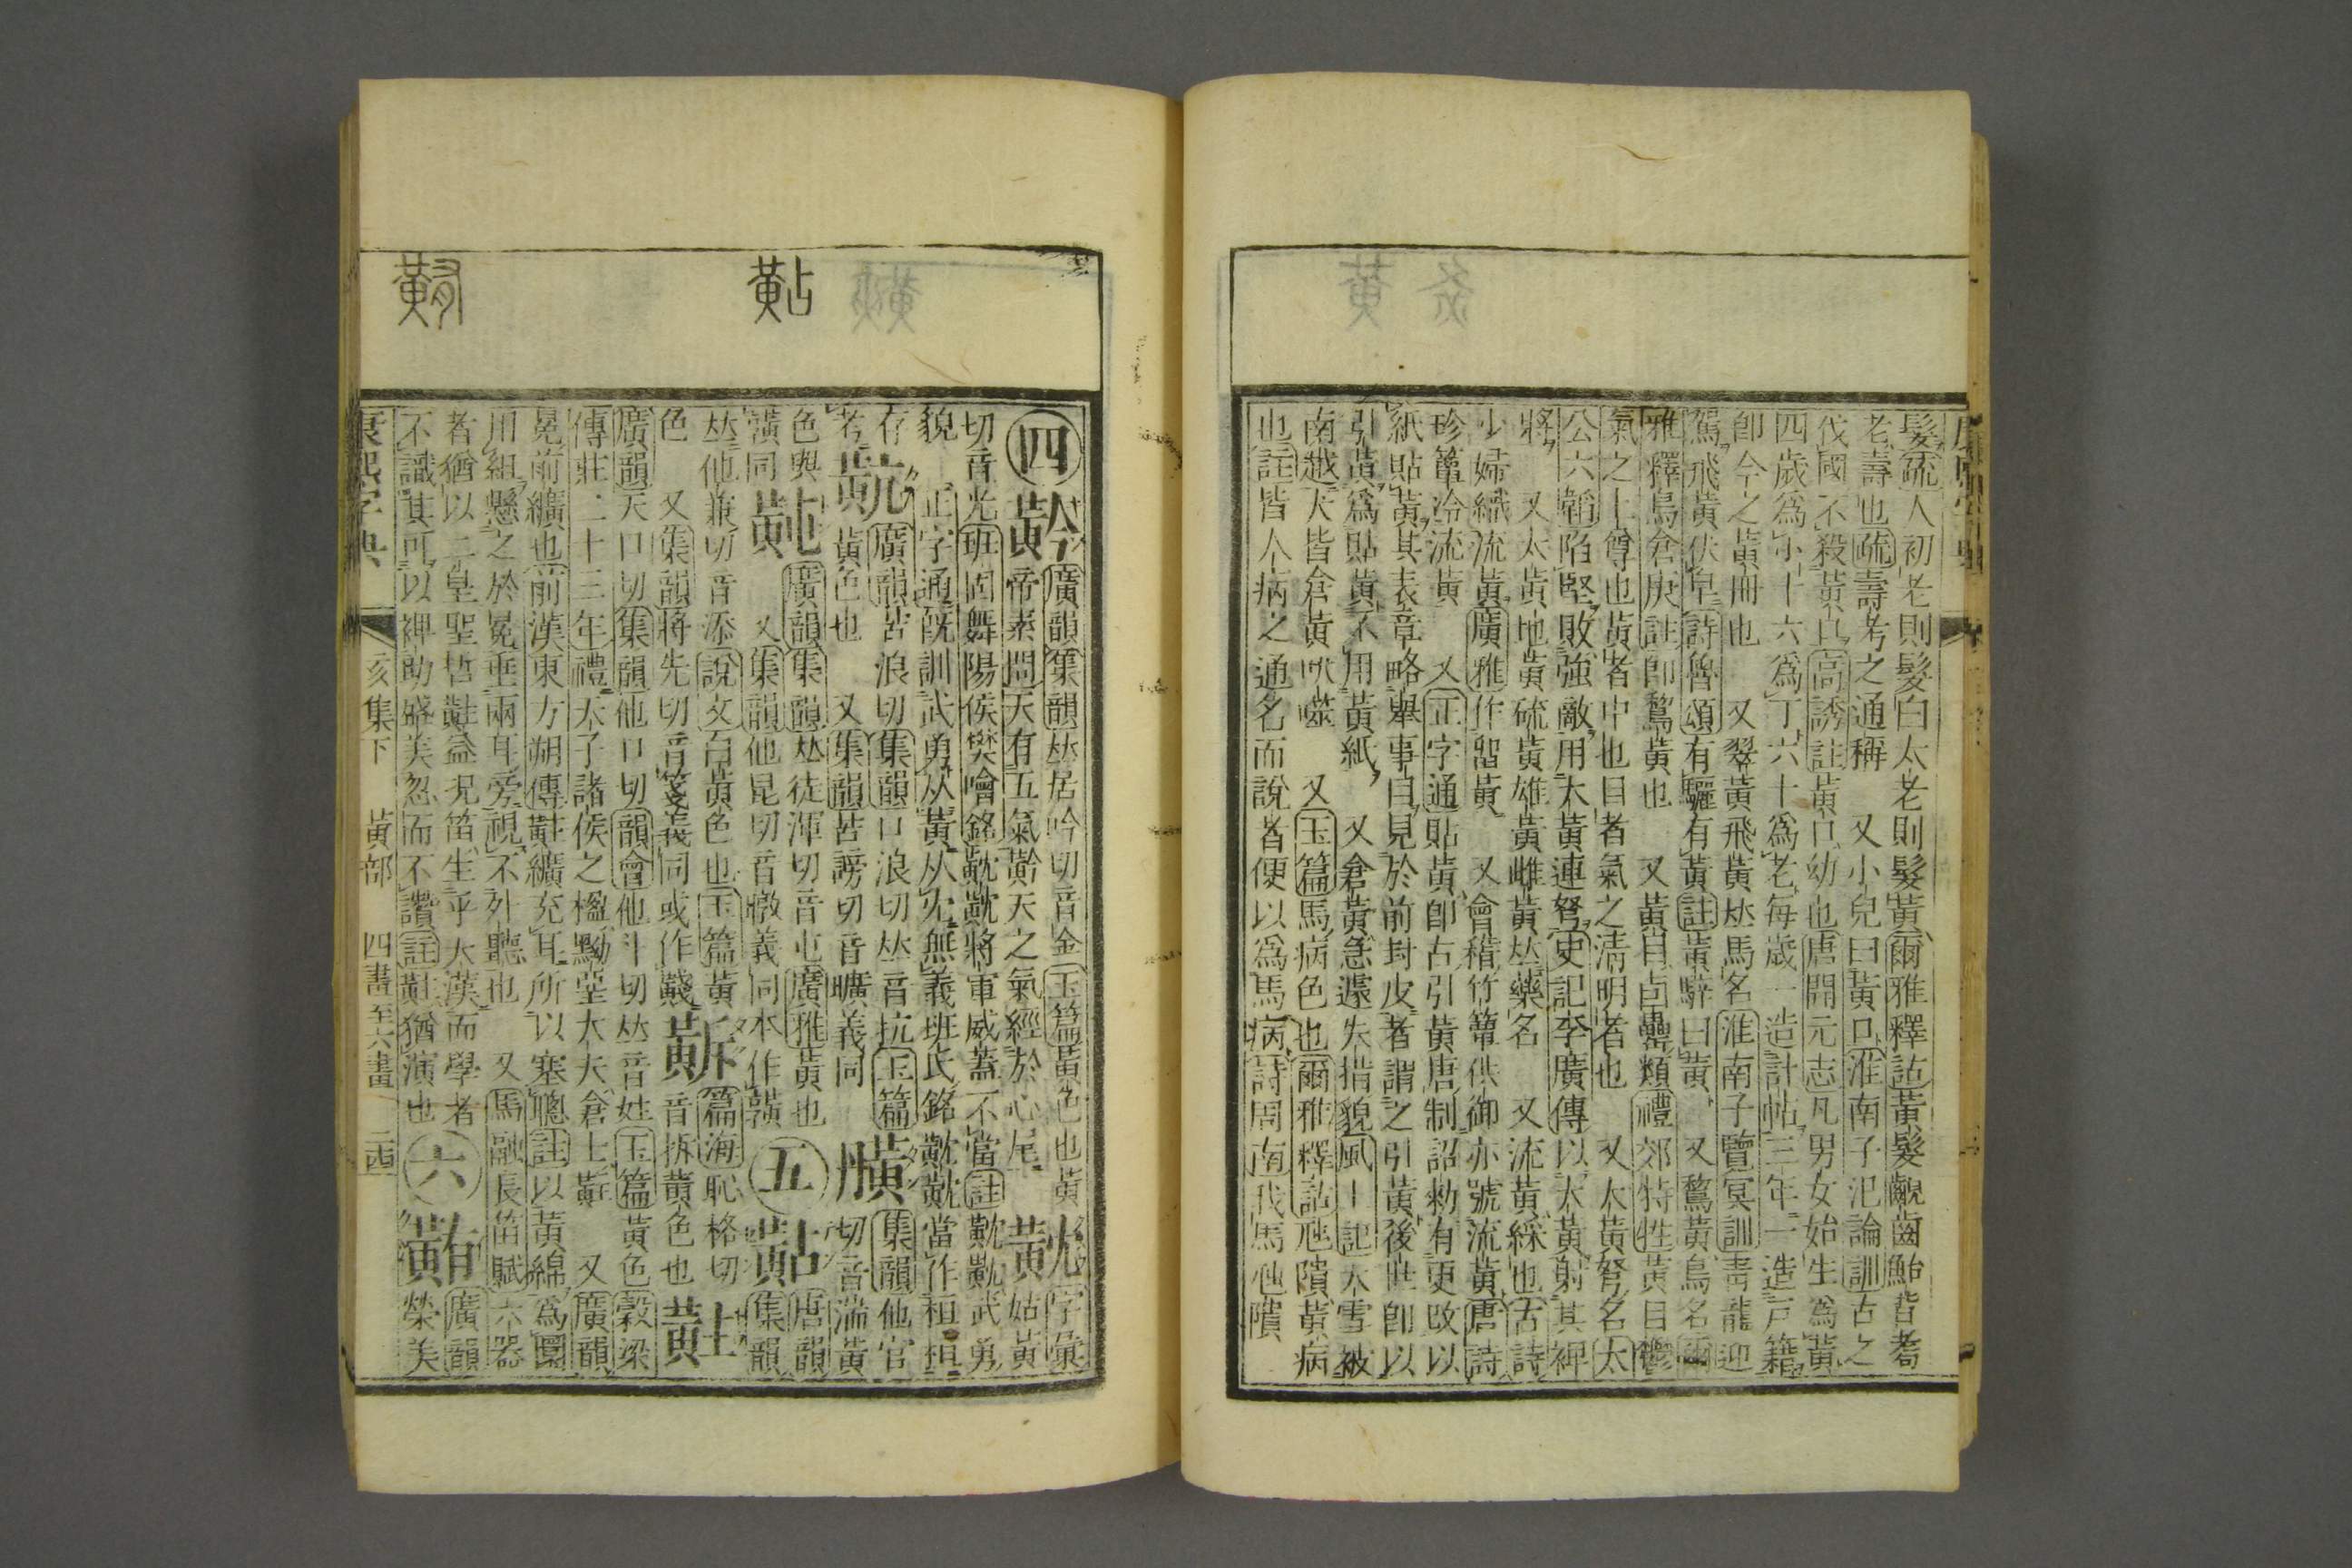 髮疏人初老則髮白太老則髮黃爾雅釋詁黃髮齯齒鮐背耇
老壽也疏壽考之通稱 又小兒曰黃口淮南子氾論訓古之
伐國不殺黃口高誘註黃口幼也唐開元志凡男女始生爲黃
四歲爲小十六爲丁六十爲老每歲一造計帖三年一造戸籍
卽今之黃冊也 又翠黃飛黃𠀤馬名淮南子覽冥訓靑龍迎
駕飛黃伏皁詩魯頌有驪有黃註黃騂曰黃 又鶖黃鳥名爾
雅釋鳥倉庚註卽鶖黃也 又黃目卣罍類禮郊特牲黃目鬱
氣之上尊也黃者中也目者氣之淸明者也 又大黃弩名太
公六韜陷堅敗強敵用大黃連弩史記李廣傳以大黃射其裨
將 又太黃地黃硫黃雄黃雌黃𠀤藥名 又流黃綵也古詩
少婦織流黃廣雅作留黃 又會稽竹簟供御亦號流黃唐詩
珍簟冷流黃 又正字通貼黃卽古引黃唐制詔勑有更改以
紙貼黃其表章略舉事目見於前封皮者謂之引黃後世卽以
引黃爲貼黃不用黃紙 又倉黃急遽失措貌風土記大雪被
南越犬皆倉黃吠噬 又玉篇馬病色也爾雅釋詁虺隤黃病
也註皆人病之通名而說者便以爲馬病詩周南我馬虺隤
黇
四
黅
廣韻集韻𠀤居吟切音金玉篇黃色也黃
帝素問天有五氣黅天之氣經於心尾
黆
字彙
姑黃
切音光班固舞陽侯樊噲銘黆黆將軍威蓋不當註黆黆武勇
貌 正字通旣訓武勇从黃从冘無義班氏銘黆黆當作桓桓
存
考
䵃
廣韻苦浪切集韻口浪切𠀤音抗玉篇
黃色也 又集韻苦謗切音曠義同
集韻他官
切音湍黃
色與
䵎同
黗
廣韻集韻𠀤徒渾切音屯廣雅黃也
又集韻他昆切音暾義同本作䵍
五
黇
唐韻
集韻
𠀤他兼切音添說文白黃色也玉篇黃
色 又集韻將先切音箋義同或作䵖
篇海恥格切
音拆黃色也
黈
廣韻天口切集韻他口切韻會他斗切𠀤音妵玉篇黃色穀梁
傳莊二十三年禮天子諸侯之楹黝堊大夫倉士黈 又廣韻
冕前纊也前漢東方朔傳黈纊充耳所以塞聰註以黃綿爲圜
用組懸之於冕垂兩耳旁視不外聽也 又馬融長笛賦六器
者猶以二皇聖哲黈益況笛生乎大漢而學者
不識其可以裨助盛美忽而不讚註黈猶演也
六
䵋
廣韻
榮美
康熙字典
亥集下 黃部 四畫至六畫